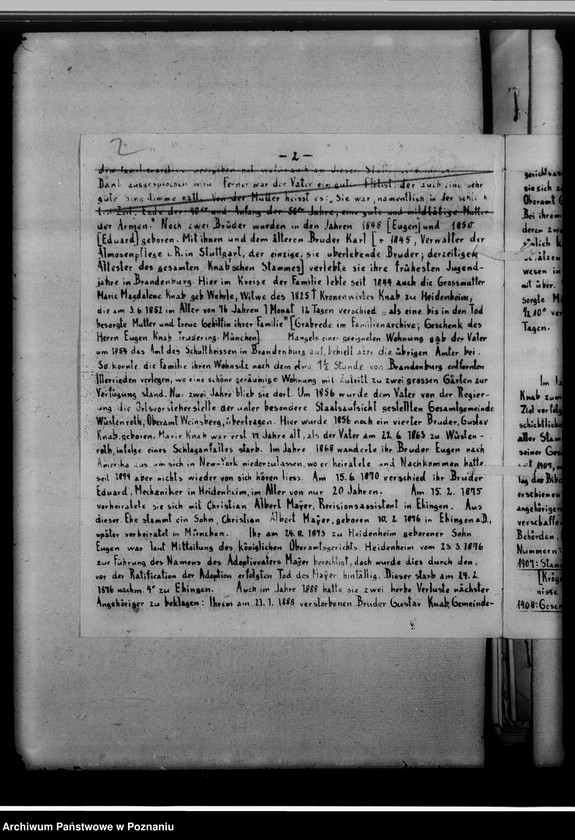 2
- 2 -
dem Familienarchive
Dank ausgesprochen wird. Ferner war der Vater ein gut. Flötist, der auch eine sehr
gute Singstimme hatte. Von der Mutter heisst es: „Sie war, namentlich in der
Zeit, Ende der 40er und Anfang der 50er Jahre, eine gute und mildtätige Mutter
der Armen." Noch zwei Brüder wurden in den Jahren 1848 [Eugen] und 1850
[Eduard] geboren. Mit ihnen und dem älteren Bruder Karl [* 1845, Verwalter der
Almosenpflege i. R. in Stuttgart, der einzige, sie überlebende Bruder; derzeitiger
Ältester des gesamten Knab'schen Stammes] verlebte sie ihre frühesten Jugend-
jahre in Brandenburg. Hier im Kreise der Familie lebte seit 1849 auch die Grossmutter
Marie Magdalene Knab geb Wehrle, Witwe des 1825 † Kronenwirtes Knab, zu Heidenheim,
die am 3. 6 1852 im Alter von 76 Jahren 1 Monat 12 Tagen verschied „als eine bis in den Tod
besorgte Mutter und treue Gehilfin ihrer Familie" [Grabrede im Familienarchive; Geschenk des
Herrn Eugen Knab Trudering-München]. Mangels einer geeigneten Wohnung gab der Vater
um 1854 das Amt des Schultheissen in Brandenburg auf, behielt aber die übrigen Ämter bei.
So konnte die Familie ihren Wohnsitz nach dem etwa 1½ Stunde von Brandenburg entfernten
Illerrieden verlegen, wo eine schöne geräumige Wohnung mit Zutritt zu zwei grossen Gärten zur
Verfügung stand. Nur zwei Jahre blieb sie dort. Um 1856 wurde dem Vater von der Regier-
ung die Ortsvorsteherstelle der unter besondere Staatsaufsicht gestellten Gesamtgemeinde
Wüstenroth, Oberamt Weinsberg, übertragen. Hier wurde 1856 noch ein vierter Bruder, Gustav
Knab, geboren. Marie Knab war erst Jahre alt, als der Vater am 22. 6 1863 zu Wüsten-
roth, infolge eines Schlaganfalles starb. Im Jahre 1868 wanderte ihr Bruder Eugen nach
Amerika aus, um sich in New-York niederzulassen, wo er heiratete und Nachkommen hatte,
seit 1894 aber nichts wieder von sich hören liess. Am 15. 6 1870 verschied ihr Bruder
Eduard, Mechaniker in Heidenheim, im Alter von nur 20 Jahren. Am 15. 2. 1875
verheiratete sie sich mit Christian Albert Mayer, Revisionsassistent in Ehingen. Aus
dieser Ehe stammt ein Sohn, Christian Albert Mayer, geboren 10. 2. 1876 in Ehingen a.D.,
später verheiratet in München. Ihr am 24. 8. 1873 zu Heidenheim geborener Sohn
Eugen war laut Mitteilung des königlichen Oberamtsgerichts Heidenheim vom 23. 3. 1876
zur Führung des Namens des Adoptivvaters Mayer berechtigt, doch wurde dies durch den,
vor der Ratification der Adoption erfolgten Tod des Mayer hinfällig. Dieser starb am 24. 2.
1876 nachm. 4° zu Ehingen. Auch im Jahre 1888 hatte sie zwei herbe Verluste nächster
Angehöriger zu beklagen: Ihrem am 21. 1. 1888 verstorbenen Bruder Gustav Knab, Gemeinde-
gerichtsass
ein sich z
Oberamt G
Bei ihrem
deren zwe
wesen in
mit über
sorgte Mü
Tagen.
Im
Knab zum
Ziel verfolg
schichtliche
aller Stam
seiner Ges
tag der Bib
erschienen
angehörigen
verschaffe
Behörden,
Nummern:
1907: Stam
nisse
1908: Gesch
Archiwum Państwowe w Poznaniu